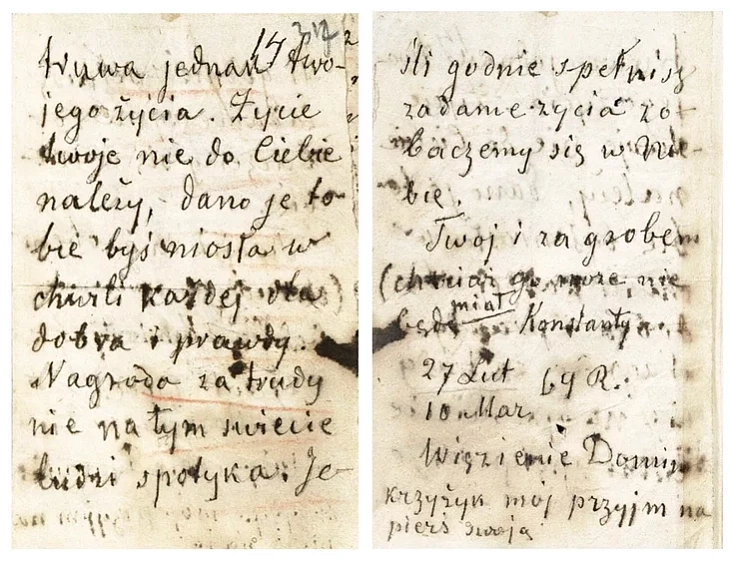 14
trywa jednak two-
jego życia. Życie
twoje nie do Ciebie
należy, dano je to-
bie byś niosła w
chwili każdej dla
dobra i prawdy.
Nagroda za trudy
nie na tym świecie
ludzi spotyka. Je-
śli godnie spełnisz
zadanie życia zo-
baczemy się w Nie-
bie.
Twój i za grobem
(chociaż go może nie
będę miał Konstanty.
27 Lut 64 R.
10 Mar.
Więzienie Domin
krzyżyk mój przyjm na
pierś swoją